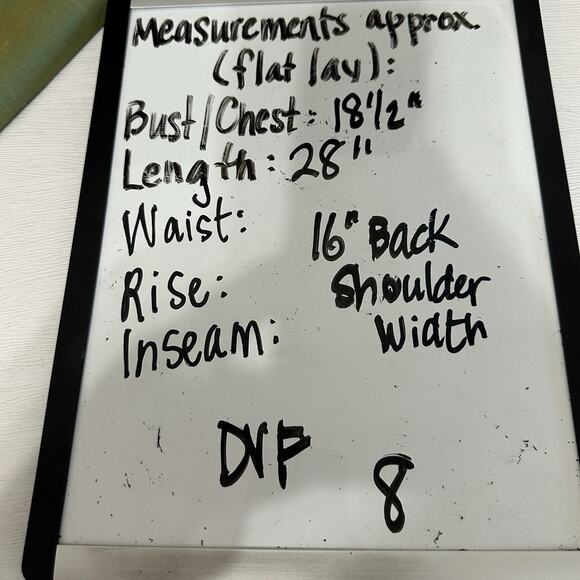 Measurements approx.
(flat lay):
Bust/Chest: 18 1/2"
Length: 28"
Waist:
16" Back
Rise:
Shoulder
Inseam:
Width
DVF
8